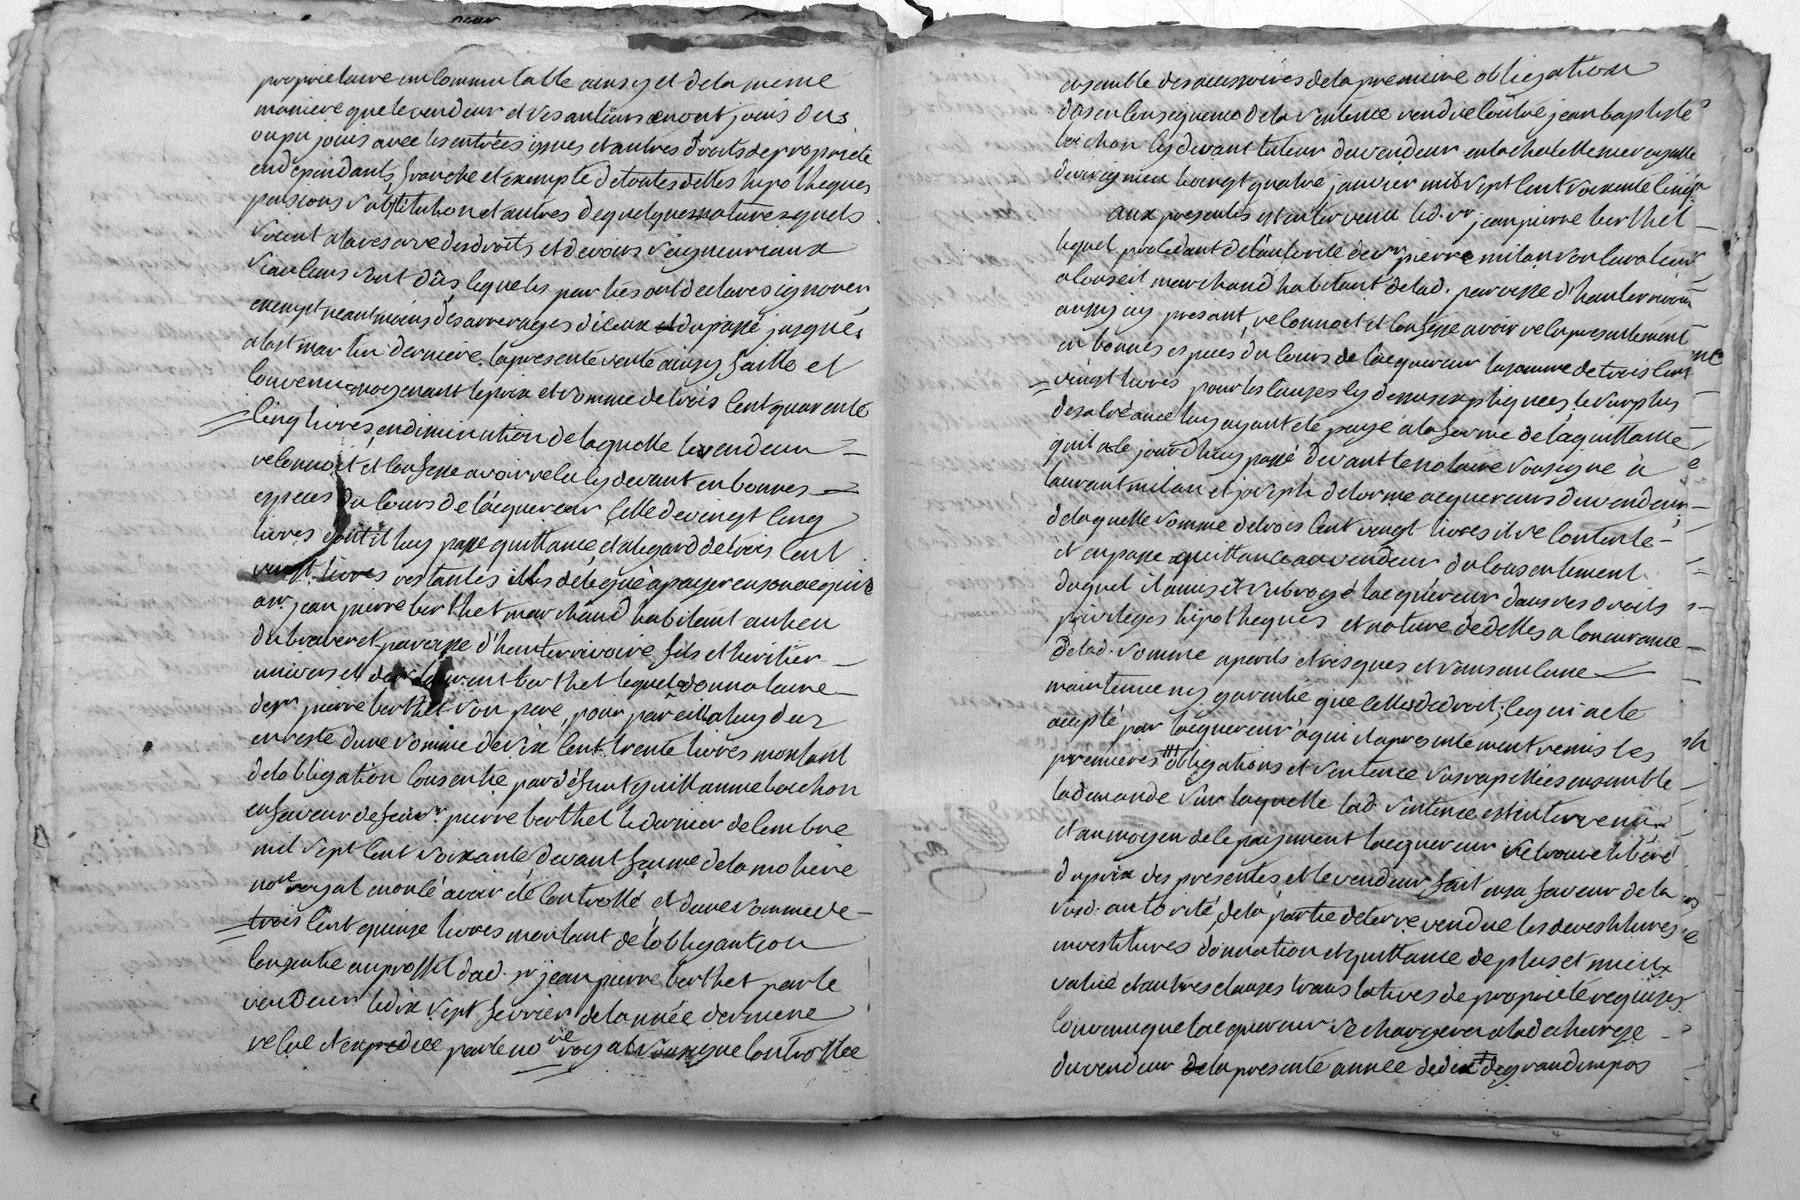 proprietaire incommutable ainsy et de la meme
maniere que le vendeur et ses auteurs en ont jouis deus
ou pu jouir avec les entrées issues et autres droits de propriete
en dependants franche et exempte de toutes dettes hipotheques
pensions substitution et autres de quelques natures quels
soient a la reserve des droits et devoirs seigneuriaux
si aucuns sont dûs lequels parties ont declarés ignorer
exempt neantmoins des arrerages d'iceux et du passé jusques
a la st martin derniere. la presente vente ainsy faitte et
convenue moyenant le prix et somme de trois cent quarente
cinq livres, en diminution de laquelle le vendeur
reconnoit et confesse avoir recu cy devant en bonnes
especes du cours de l'acquereur celle de vingt cinq
livres dont il luy passe quittance et a legard de trois cent
vingt livres restantes il les délegue a payer en son acquit
a sr. jean pierre berthet marchand habitant au lieu
du paroisse d'hauterivoire fils et heritier
universel de sr laurant berthet lequel donnataire
de sr pierre berthet son pere, pour pareille a luy due
en reste d'une somme de six cent trente livres montant
de l'obligation consentie par défunt guillaume boichon
en faveur de feu sr. pierre berthet le dernier decembre
mil sept cent soixante devant jaume de la moliere
nore royal enoncé avoir été controllé et d'une somme de
trois cent quinze livres montant de l'obligation
consentie au proffit dud. sr jean pierre berthet par le
vendeur le dix sept fevrier de l'année derniere
recue et expediée par le nore royal soussigné controllée
ensemble des accessoires de la premiere obligation
dûs en consequence de la sentence rendue contre jean baptiste
boichon cy devant tuteur du vendeur en la chatellenie royalle
de le vingt quatre janvier mil sept cent soixante cinq
aux presentes est intervenu led. sr jean pierre berthet
lequel procedant de l'autorité de sr pierre milan son curateur
a conseil marchand habitant de lad. paroisse d'hauterivoire
aussy icy present, reconnoit et confesse avoir recu presentement
en bonnes especes du cours de l'acquereur la somme de trois cent
vingt livres pour les causes cy dessus expliquées, le surplus
de sa créance luy ayant été payé a la forme de la quittance
qu'il a le jourd'huy passé devant le notaire soussigné à
laurant milan et joseph delorme acquereurs du vendeur
de laquelle somme de trois cent vingt livres il se contente
et en passe quittance au vendeur du consentement
duquel il a mis et subrogé l'acquereur dans ses droits
privileges hipotheques et nature de dettes a concurrance
de lad. somme a perils et risques et sans aucune
maintenue ny garentie que celles de droit, ce qui a eté
accepté par l'acquereur à qui il a presentement remis les
premieres obligations et sentence susrapellées ensemble
la demande sur laquelle lad. sentence est intervenue
et au moyen de ce payement l'acquereur se trouve libéré
du prix des presentes et le vendeur fait en sa faveur de la
susd. autorité, de la partie de terre vendue les devestitures
investitures donnation et quittance de plus et mieux
value et autres clauses translatives de propriete requises
convenu que l'acquereur se chargera a la decharge
du vendeur de la presente année de de grand impos